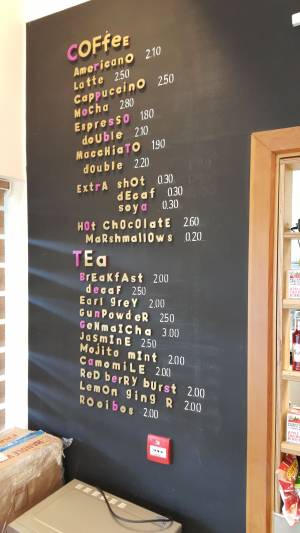 COffeE
AmericanO 2.10
Latte 2.50
CappuccinO 2.50
MoCha 2.80
EspressO 1.80
doUble 2.10
MaccHiaTO 1.90
dOUble 2.20
ExtrA shOt 0.30
dEcaf 0.30
soya 0.30
HOt ChOcOlatE 2.60
MaRshmallOws 0.20
TEa
BrEaKfAst 2.00
decaf 2.50
Earl greY 2.00
GunPowdeR 2.50
GeNmaiCha 3.00
JaSMINE 2.50
MoJito mINt 2.00
CamomiLE 2.00
ReD beRRy bURst 2.00
LemOn ging R 2.00
ROoibos 2.00